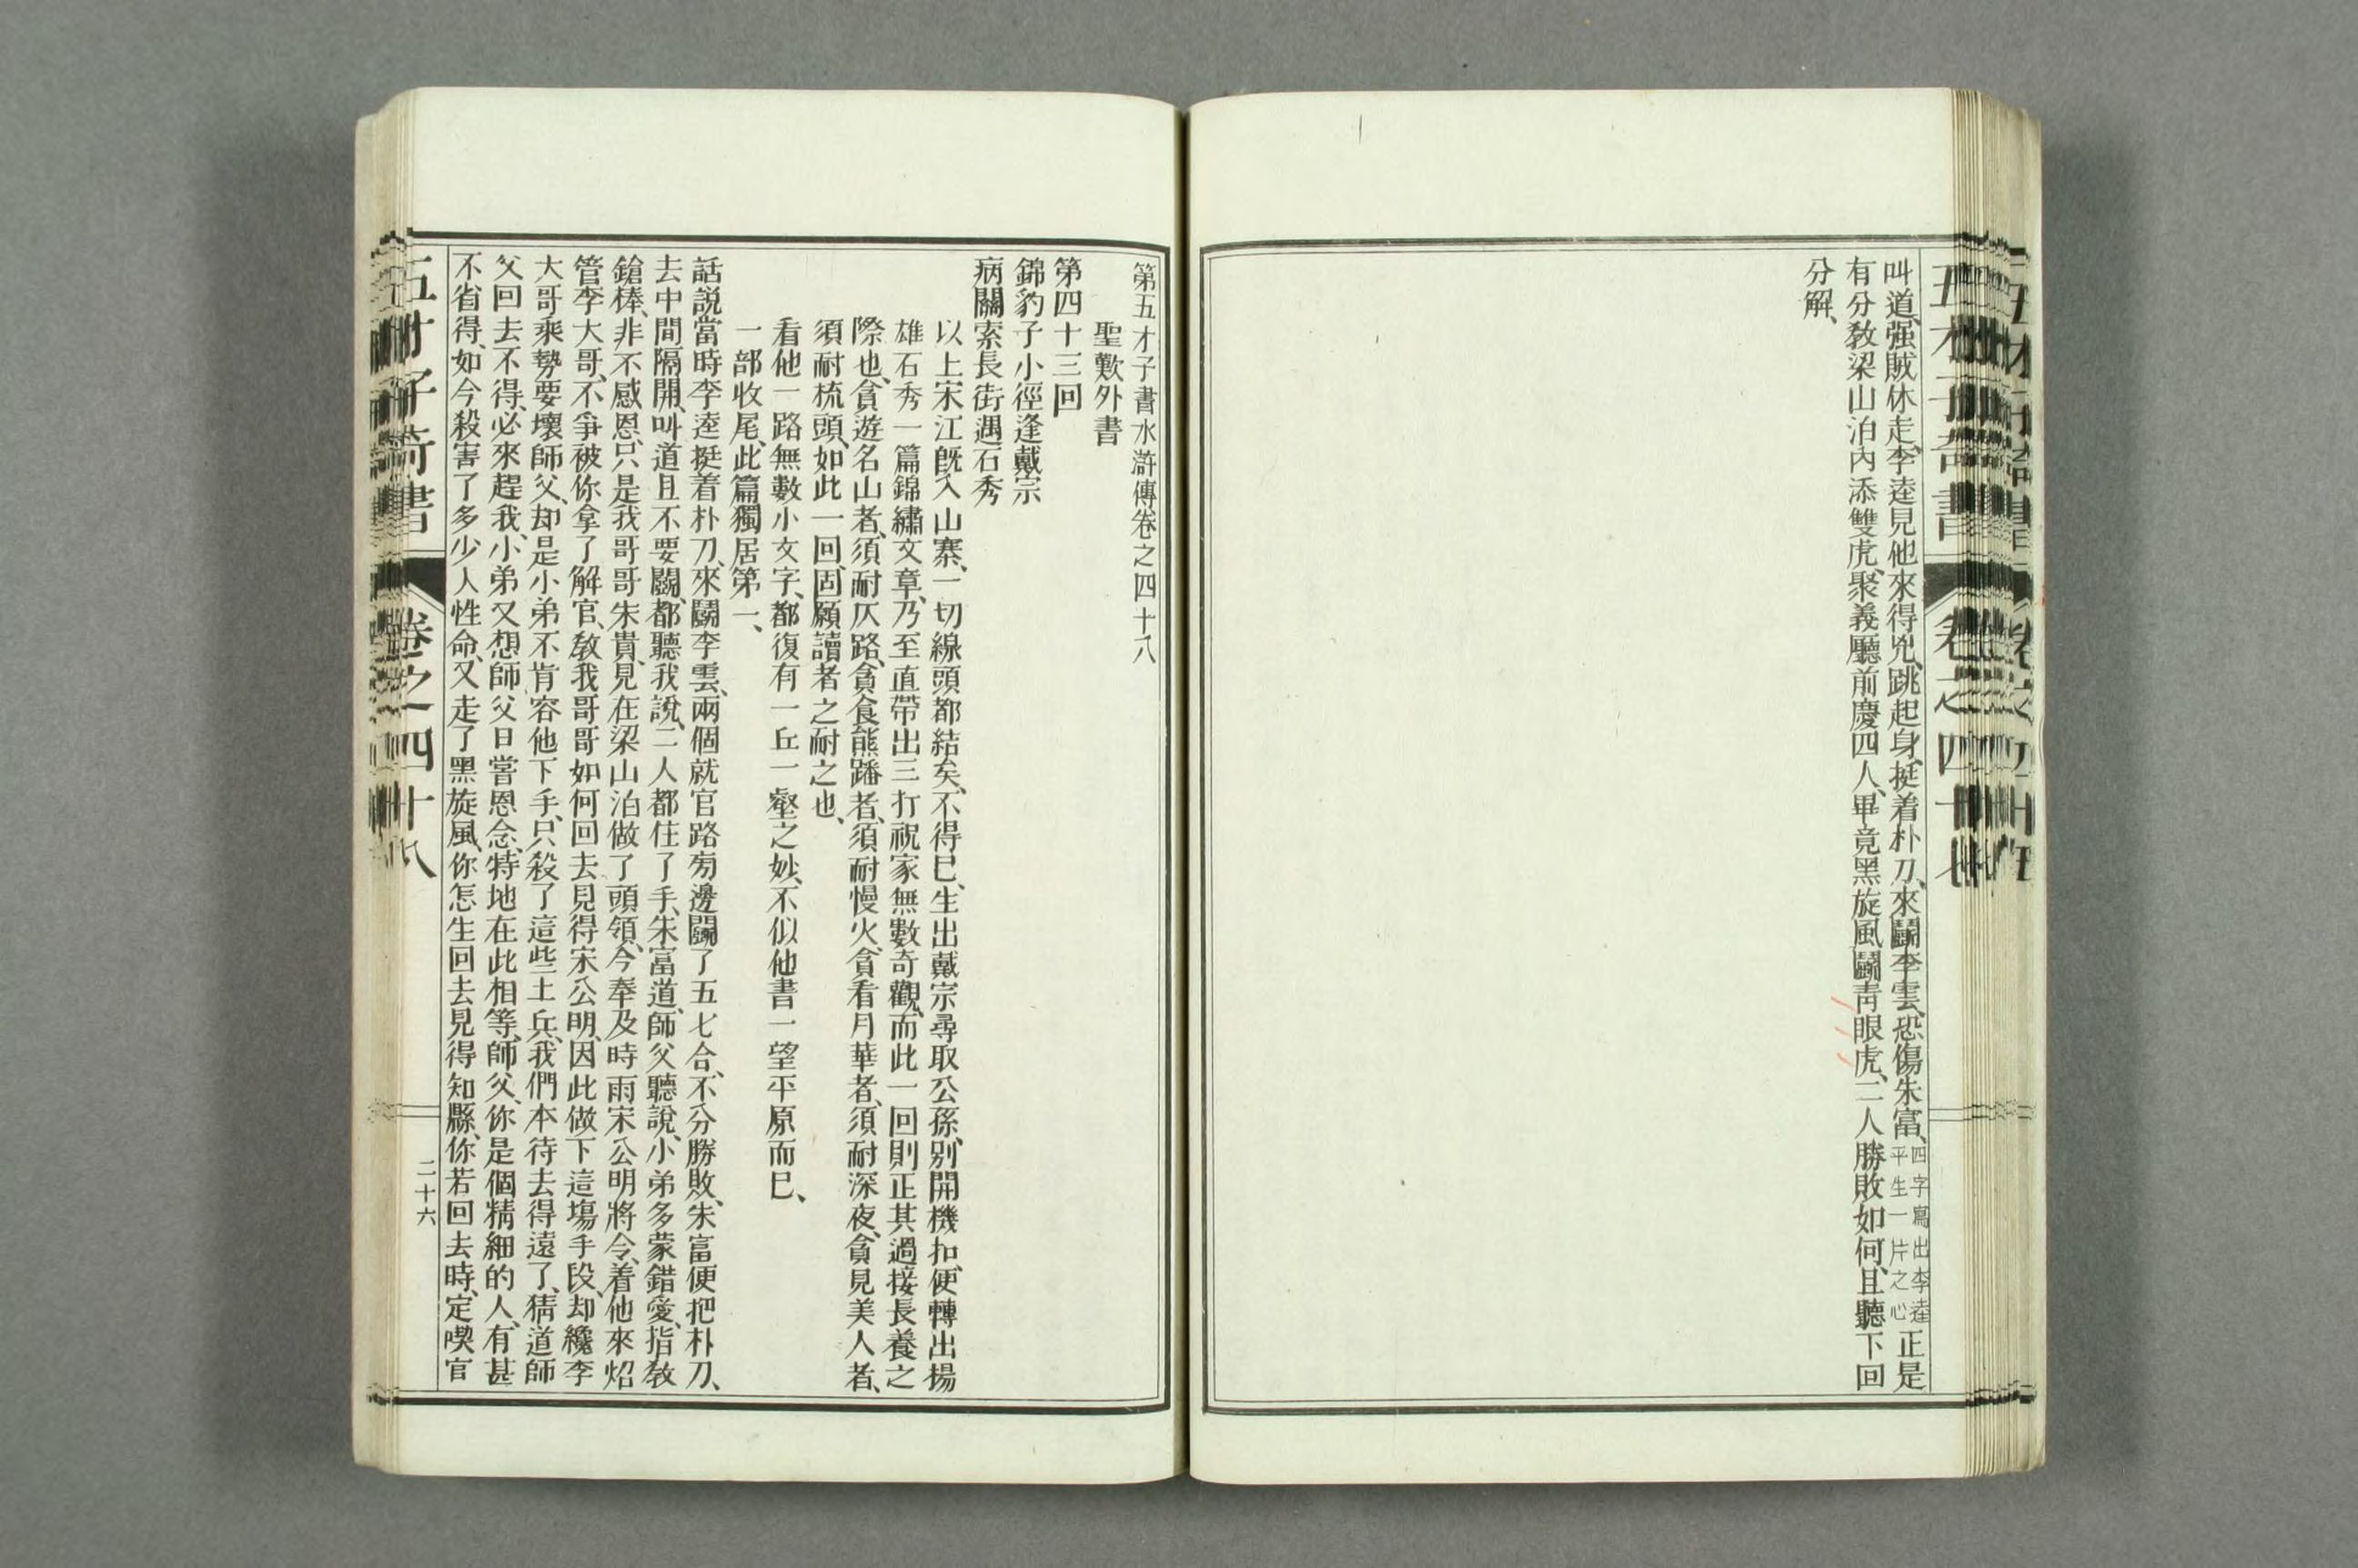 叫道、强賊休走、李逵見他來得兇、跳起身、挺着朴刀、來鬭李雲、恐傷朱富、四字寫出李逵平生一片之心正是
有分敎梁山泊內添雙虎、聚義廳前慶四人、畢竟黑旋風鬭靑眼虎、二人勝敗如何、且聽下回
分解、
第五才子書水滸傳卷之四十八
聖歎外書
第四十三回
錦豹子小徑逢戴宗
病關索長街遇石秀
以上宋江旣入山寨、一切線頭都結矣、不得巳、生出戴宗尋取公孫、別開機扣、便轉出揚
雄石秀一篇錦繡文章、乃至直帶出三打祝家無數奇觀、而此一回則正其過接長養之
際也、貪遊名山者、須耐仄路、貪食熊蹯者、須耐慢火、貪看月華者、須耐深夜、貪見美人者、
須耐梳頭、如此一回、固願讀者之耐之也、
看他一路無數小文字、都復有一丘一壑之妙、不似他書一望平原而巳、
一部收尾、此篇獨居第一、
話說當時李逵挺着朴刀、來鬭李雲、兩個就官路旁邊鬭了五七合、不分勝敗、朱富便把朴刀、
去中間隔開、叫道且不要鬭、都聽我說、二人都住了手、朱富道、師父聽說、小弟多蒙錯愛、指敎
鎗棒、非不感恩、只是我哥哥朱貴、見在梁山泊做了頭領、今奉及時雨宋公明將令、着他來炤
管李大哥、不爭被你拿了解官、敎我哥哥如何回去見得宋公明、因此做下這塲手段、却纔李
大哥乘勢要壞師父、却是小弟不肯容他下手、只殺了這些土兵、我們本待去得遠了、猜道師
父回去不得、必來趕我、小弟又想師父日嘗恩念、特地在此相等、師父、你是個精細的人、有甚
不省得、如今殺害了多少人性命、又走了黑旋風、你怎生回去見得知縣、你若回去時、定喫官
五才子奇書
卷之四十八
二十六